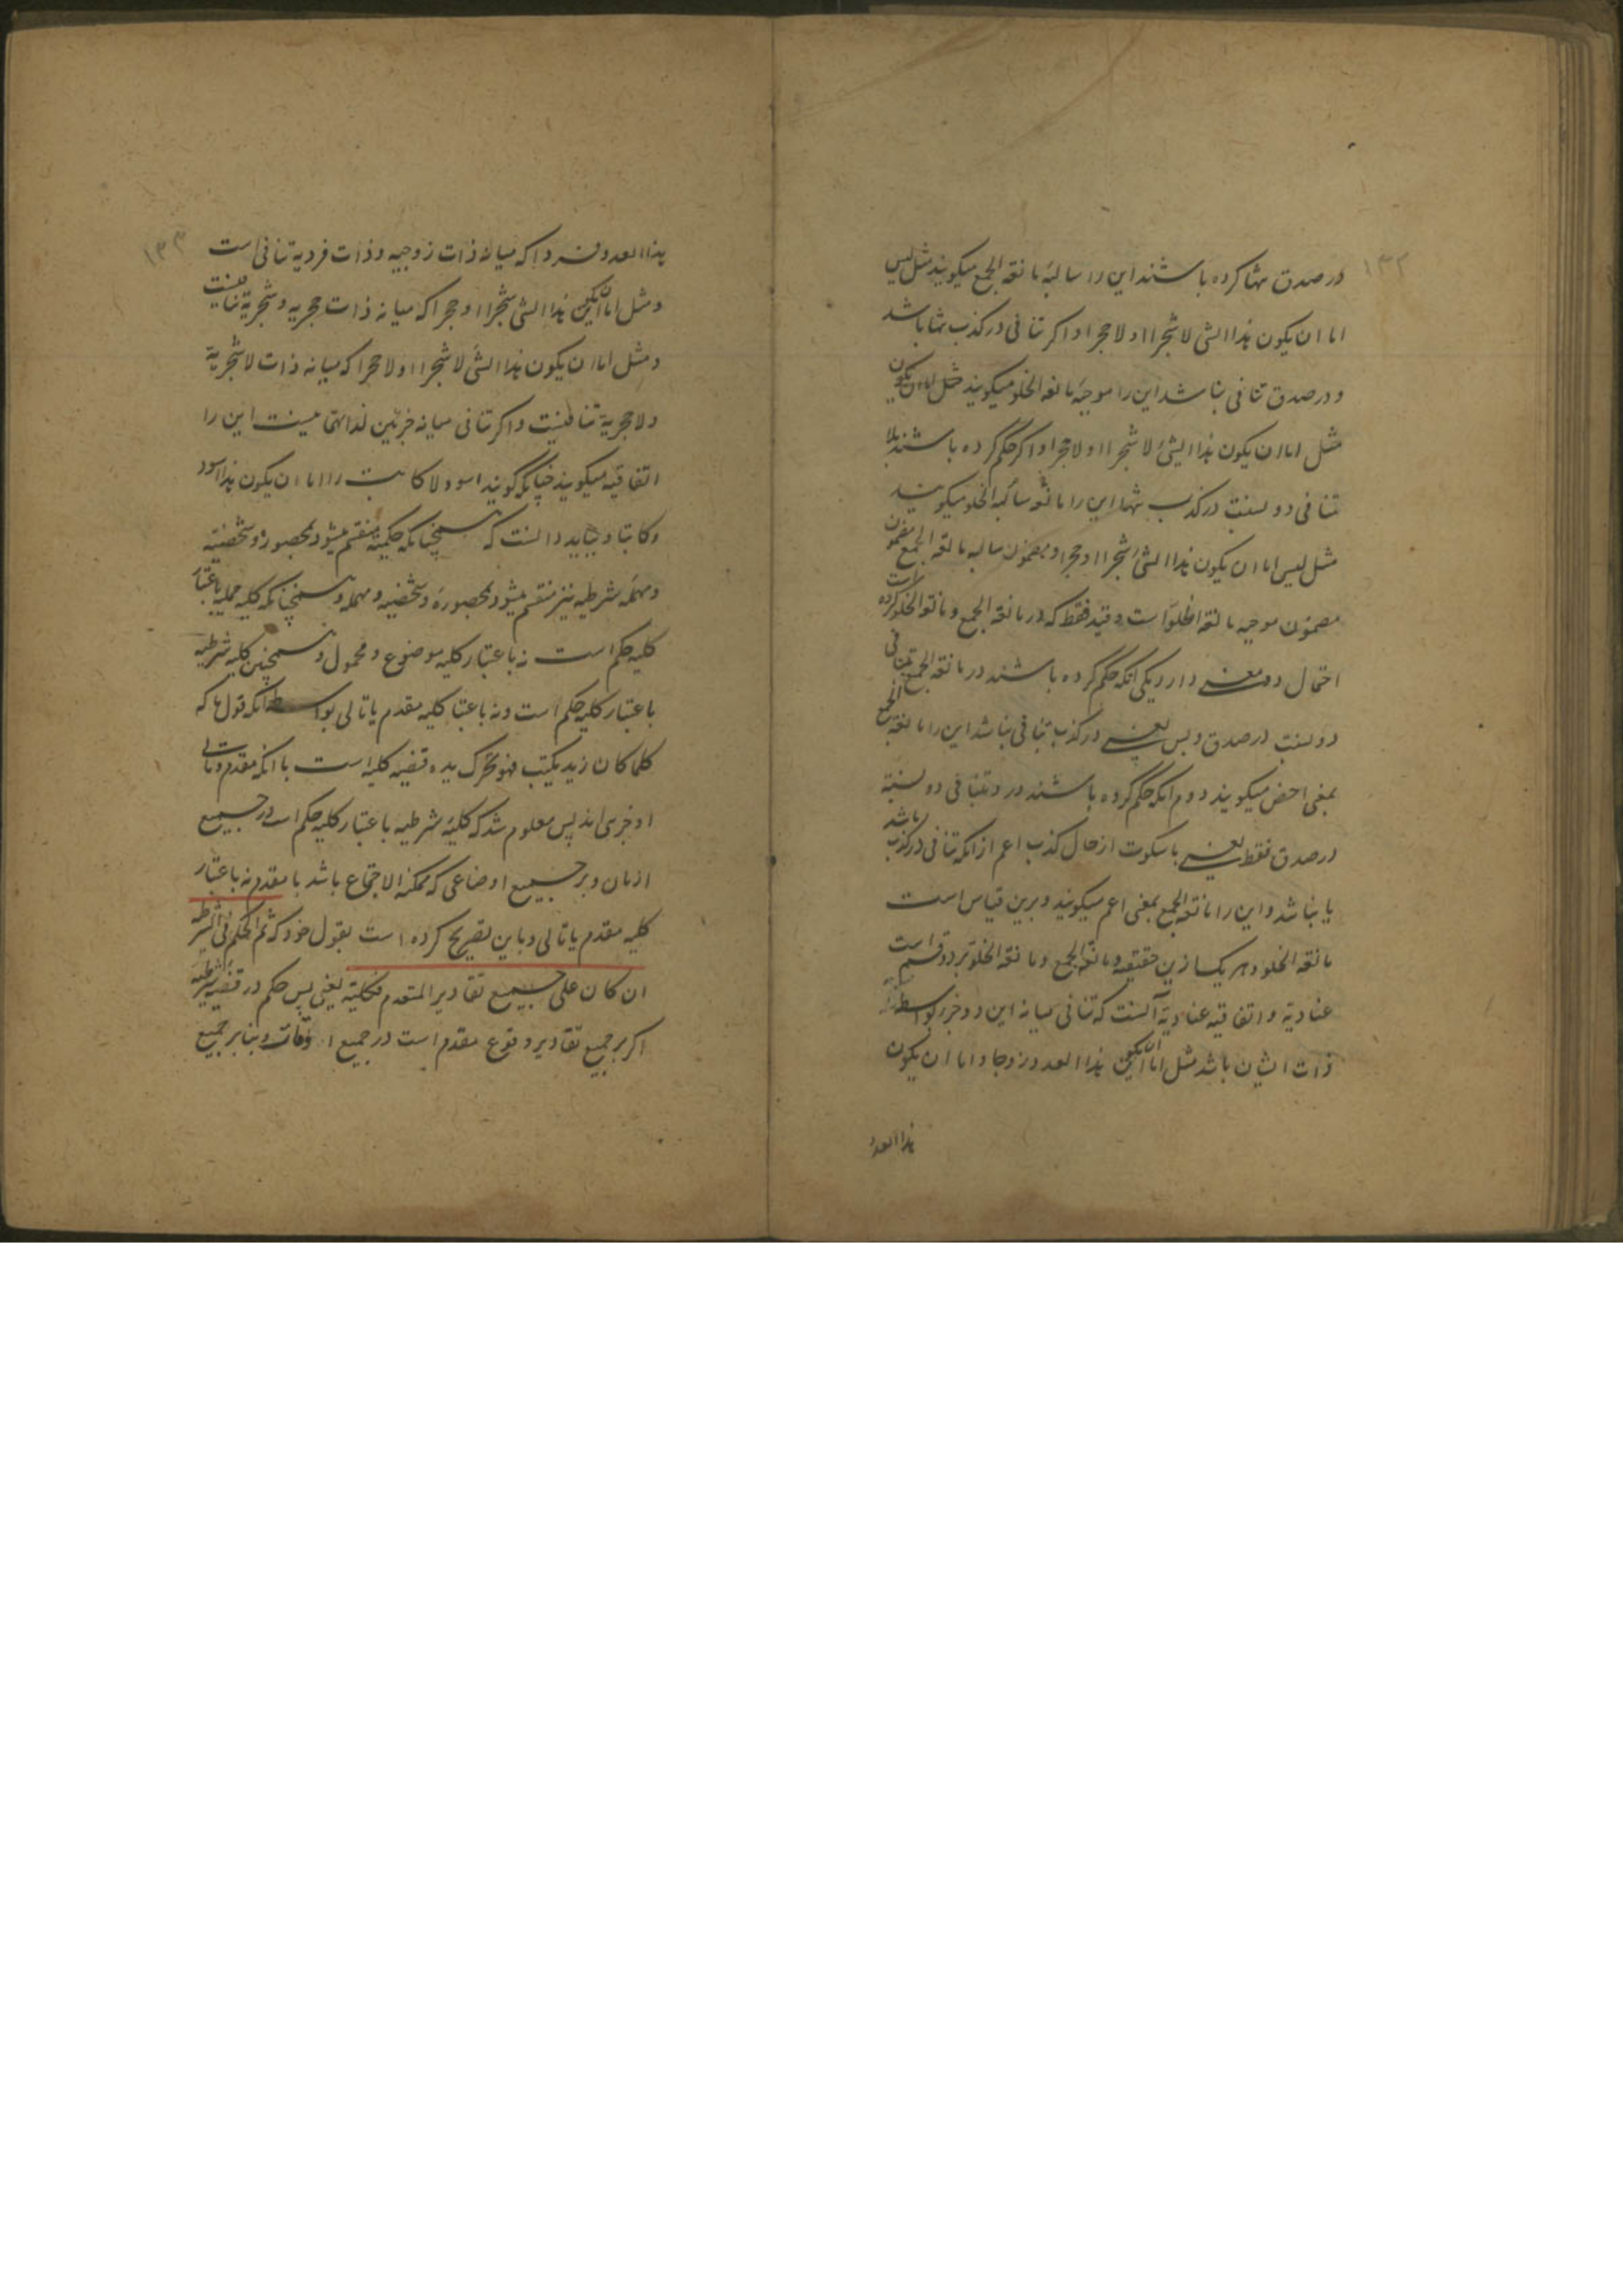 ۱۳۲
در صدق تنها کرده باشند این را سالبهٔ مانعة الجمع میکویند مثل لیس
اما ان یکون هذا الشی لا شجرا او لا حجرا و اکر تنافی در کذب تنها باشد
و در صدق تنافی نباشد این را موجبه مانعة الخلو میکویند مثل اما ان یکون
مثل اما ان یکون هذا الشئ لا شجرا او لا حجرا و اکر حکم کرده باشند بلا
تنافی دو نسبت در کذب تنها این را مانعة سالبه الخلو میکویند
مثل لیس اما ان یکون هذا الشئ شجرا او حجرا و مضمون سالبه مانعة الجمع مضمون
مضمون موجبه مانعة الخلو است و قید فقط که در مانعة الجمع و مانعة الخلو کرده است
احتمال دو معنی دارد یکی آنکه حکم کرده باشند در مانعة الجمع تنافی
دو نسبت در صدق و بس یعنی در کذب تنافی نباشد این را مانعة الجمع
بمعنی اخص میکویند دوم آنکه حکم کرده باشند در و تنافی دو نسبة
در صدق فقط یعنی با سکوت از حال کذب اعم از آنکه تنافی در کذب باشد
یا نباشد و این را مانعة الجمع بمعنی اعم میکویند و برین قیاس است
مانعة الخلو و هر یک ازین حقیقیه و مانعة الجمع و مانعة الخلو بر دو قسم است
عنادیة و اتفاقیه عنادیة آنست که تنافی میانه این دو جزو بواسطه
ذات ایشان باشد مثل اما ان یکون هذا العدد زوجا و اما ان یکون
هذا العدد
۱۳۳
هذا العدد فردا که میانه ذات زوجیه و ذات فردیة تنافی است
و مثل اما ان یکون هذا الشی شجرا او حجرا که میانه ذات حجریه و شجریة تنافیست
و مثل اما ان یکون هذا الشئ لا شجرا او لا حجرا که میانه ذات لا شجریة
و لا حجریة تنافیست و اکر تنافی میانه جزئین لذاتهما نیست این را
اتفاقیه میکویند چنانکه کویند اسود و لا کاتب را اما ان یکون هذا اسود
و کاتبا و بباید دانست که همچنانکه حملیة منقسم میشود بمحصوره و شخصیة
و مهمله شرطیه نیز منقسم میشود بمحصورة و شخصیه و مهمله و همچنانکه کلیه حملیه باعتبار
کلیه حکم است نه باعتبار کلیه موضوع و محمول و همچنین کلیه شرطیه
باعتبار کلیه حکم است و نه باعتبار کلیه مقدم یا تالی بواسطه آنکه قول ما که
کلما کان زید یکتب فهو یحرک یده قضیه کلیه است با آنکه مقدم و تالی
او جزئی اند پس معلوم شد که کلیه شرطیه باعتبار کلیه حکم است در جمیع
ازمان و بر جمیع اوضاعی که ممکنة الاجتماع باشد با مقدم نه باعتبار
کلیه مقدم یا تالی و باین تصریح کرده است بقول خود که ثم الحکم فی الشرطیه
ان کان علی جمیع تقادیر المقدم فکلیة یعنی پس حکم در قضیه شرطیه
اکر بر جمیع تقادیر وقوع مقدم است در جمیع اوقات و بنابر جمیع